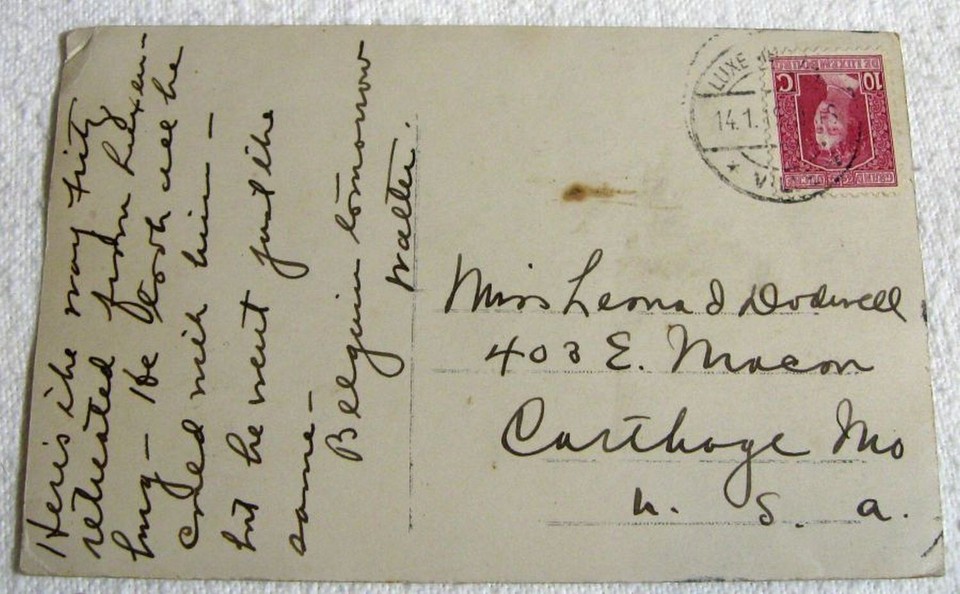 Here is the way Fritz
retreated from Luxem-
burg - He took all he
could with him -
but he went just the
same -
Belgium tomorrow
Walter.
LUXE
14.1.
VILLE
GRAND DUCHÉ
DE LUXEMBOURG
10 C
Miss Leona J Dodwell
403 E. Macon
Carthage Mo
U. S. A.